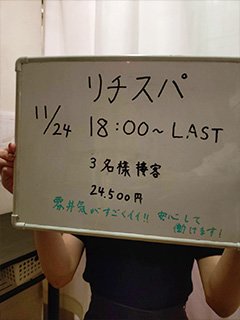 リチスパ
11/24 18:00~LAST
3名様接客
24.500円
雰井気がすごくイイ!! 安心して
働けます!